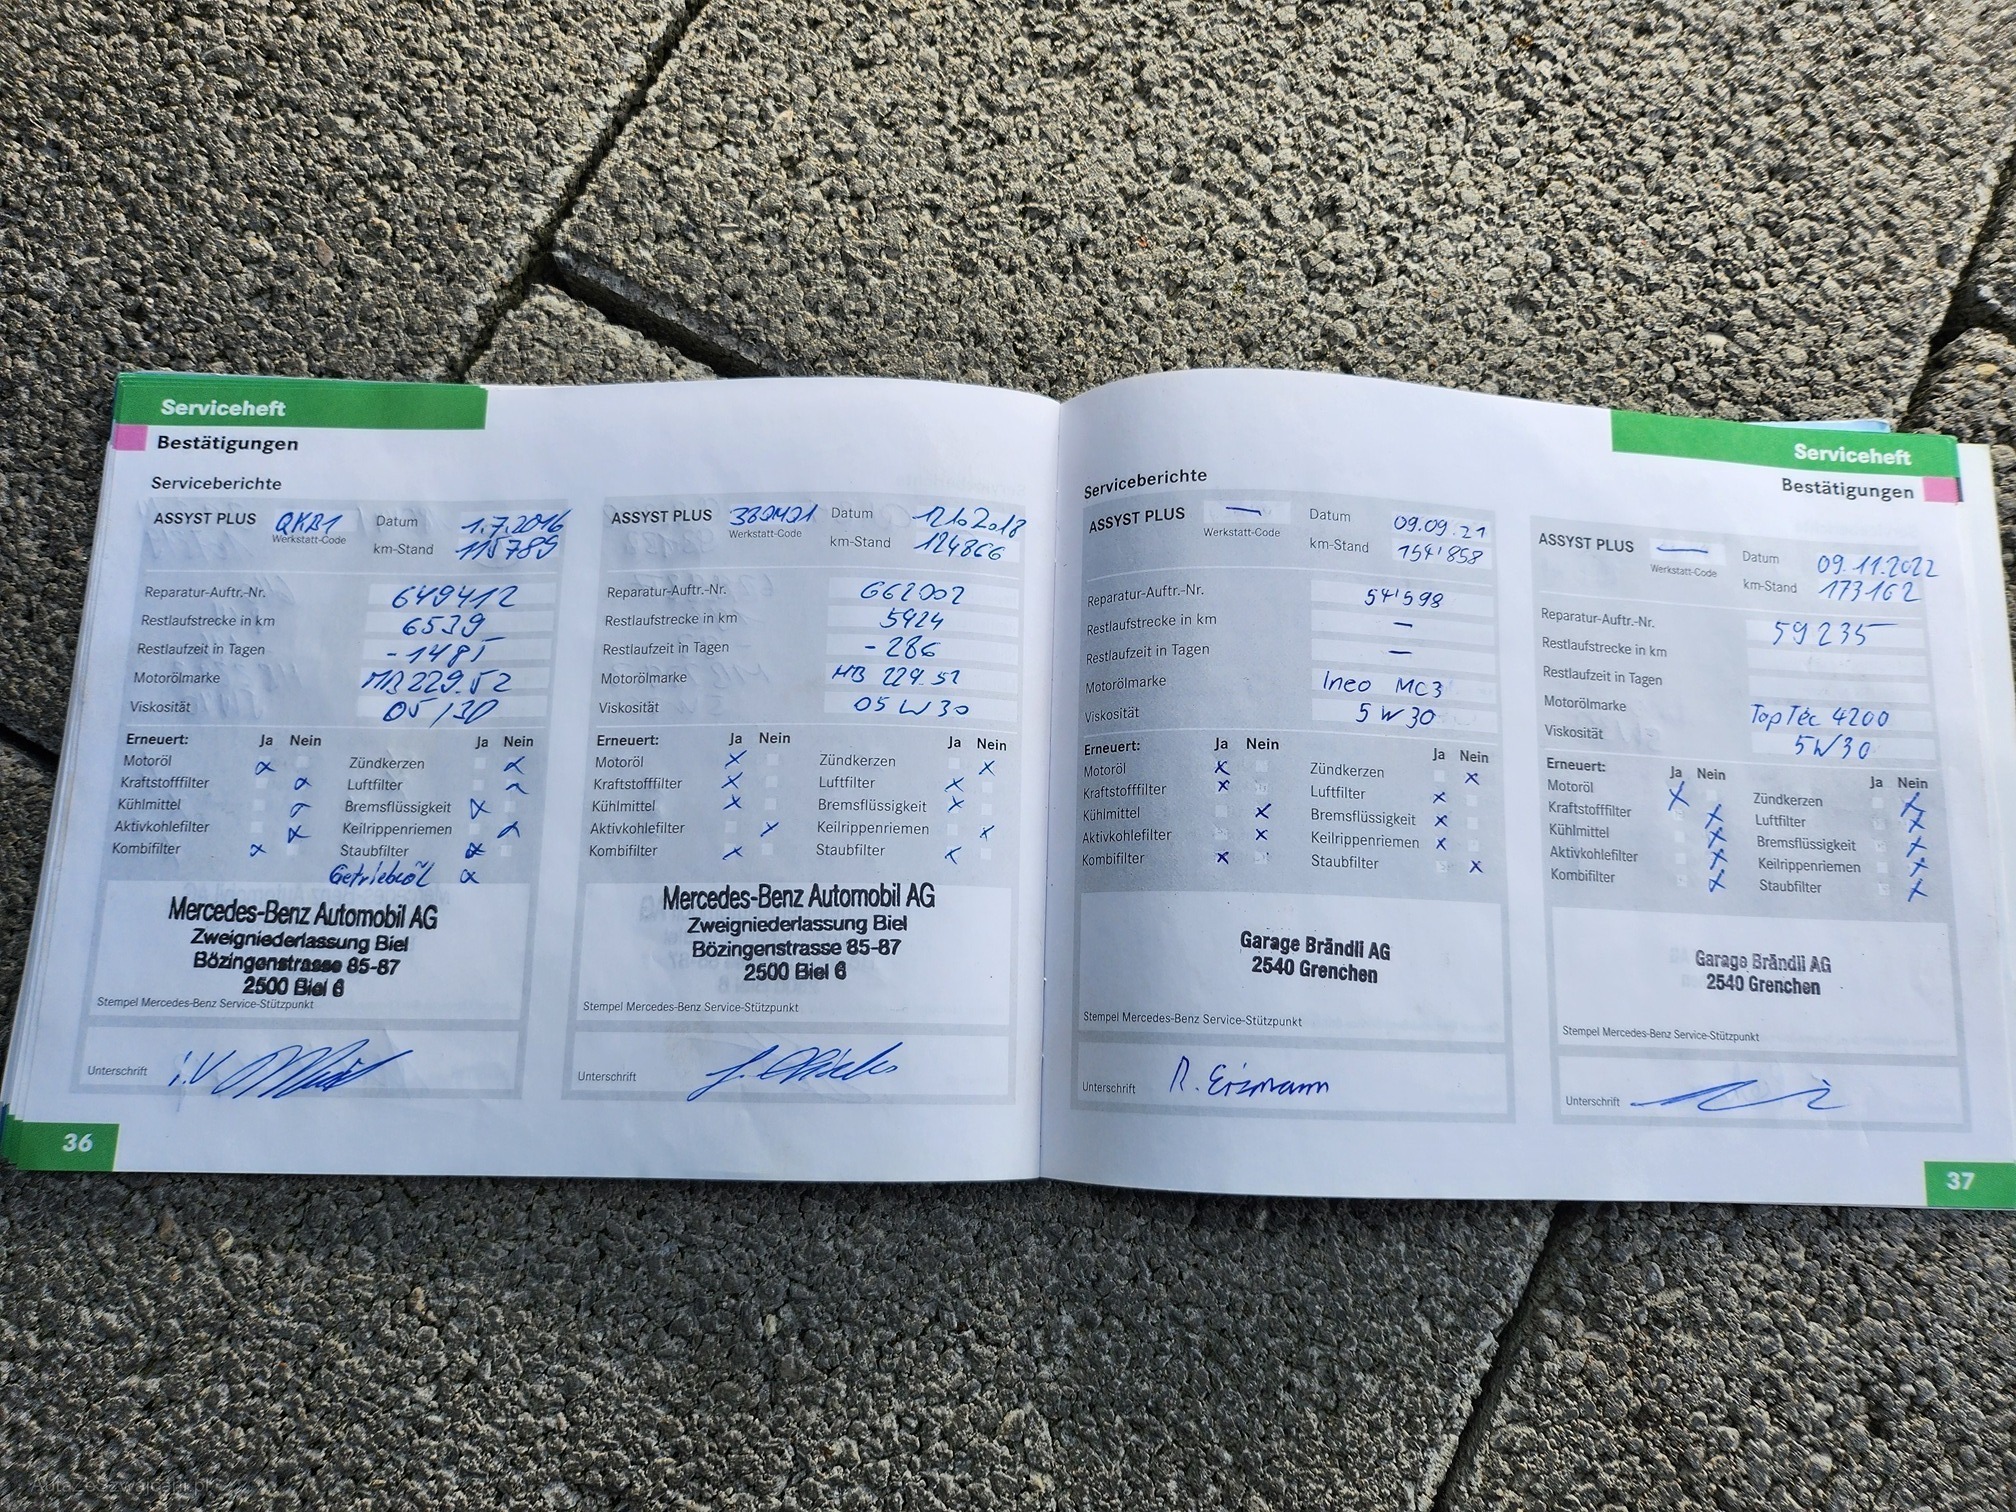 Serviceheft
Bestätigungen
Serviceberichte
ASSYST PLUS QKB1 Datum 1.7.2016
Werkstatt-Code
km-Stand 115789
Reparatur-Auftr.-Nr. 649412
Restlaufstrecke in km 6539
Restlaufzeit in Tagen -1485
Motorölmarke MB 229.52
Viskosität 05/30
Erneuert: Ja Nein Ja Nein
Motoröl x Zündkerzen x
Kraftstofffilter x Luftfilter x
Kühlmittel x Bremsflüssigkeit x
Aktivkohlefilter x Keilrippenriemen x
Kombifilter x Staubfilter x
Getriebeöl x
Mercedes-Benz Automobil AG
Zweigniederlassung Biel
Bözingenstrasse 85-87
2500 Biel 6
Stempel Mercedes-Benz Service-Stützpunkt
Unterschrift i.V
36
ASSYST PLUS Datum 12.10.2018
Werkstatt-Code
km-Stand 124866
Reparatur-Auftr.-Nr. 662002
Restlaufstrecke in km 5924
Restlaufzeit in Tagen -286
Motorölmarke MB 229.51
Viskosität 05 W 30
Erneuert: Ja Nein Ja Nein
Motoröl x Zündkerzen x
Kraftstofffilter x Luftfilter x
Kühlmittel x Bremsflüssigkeit x
Aktivkohlefilter x Keilrippenriemen x
Kombifilter x Staubfilter x
Mercedes-Benz Automobil AG
Zweigniederlassung Biel
Bözingenstrasse 85-87
2500 Biel 6
Stempel Mercedes-Benz Service-Stützpunkt
Unterschrift
Serviceheft
Bestätigungen
Serviceberichte
ASSYST PLUS — Datum 09.09.21
Werkstatt-Code
km-Stand 154'858
Reparatur-Auftr.-Nr. 54'598
Restlaufstrecke in km —
Restlaufzeit in Tagen —
Motorölmarke Ineo MC3
Viskosität 5 W 30
Erneuert: Ja Nein Ja Nein
Motoröl x Zündkerzen x
Kraftstofffilter x Luftfilter x
Kühlmittel x Bremsflüssigkeit x
Aktivkohlefilter x Keilrippenriemen x
Kombifilter x Staubfilter x
Garage Brändli AG
2540 Grenchen
Stempel Mercedes-Benz Service-Stützpunkt
Unterschrift R. Erzmann
ASSYST PLUS — Datum 09.11.2022
Werkstatt-Code
km-Stand 173162
Reparatur-Auftr.-Nr. 59235
Restlaufstrecke in km
Restlaufzeit in Tagen
Motorölmarke TopTec 4200
Viskosität 5W30
Erneuert: Ja Nein Ja Nein
Motoröl x Zündkerzen x
Kraftstofffilter x Luftfilter x
Kühlmittel x Bremsflüssigkeit x
Aktivkohlefilter x Keilrippenriemen x
Kombifilter x Staubfilter x
Garage Brändli AG
2540 Grenchen
Stempel Mercedes-Benz Service-Stützpunkt
Unterschrift
37